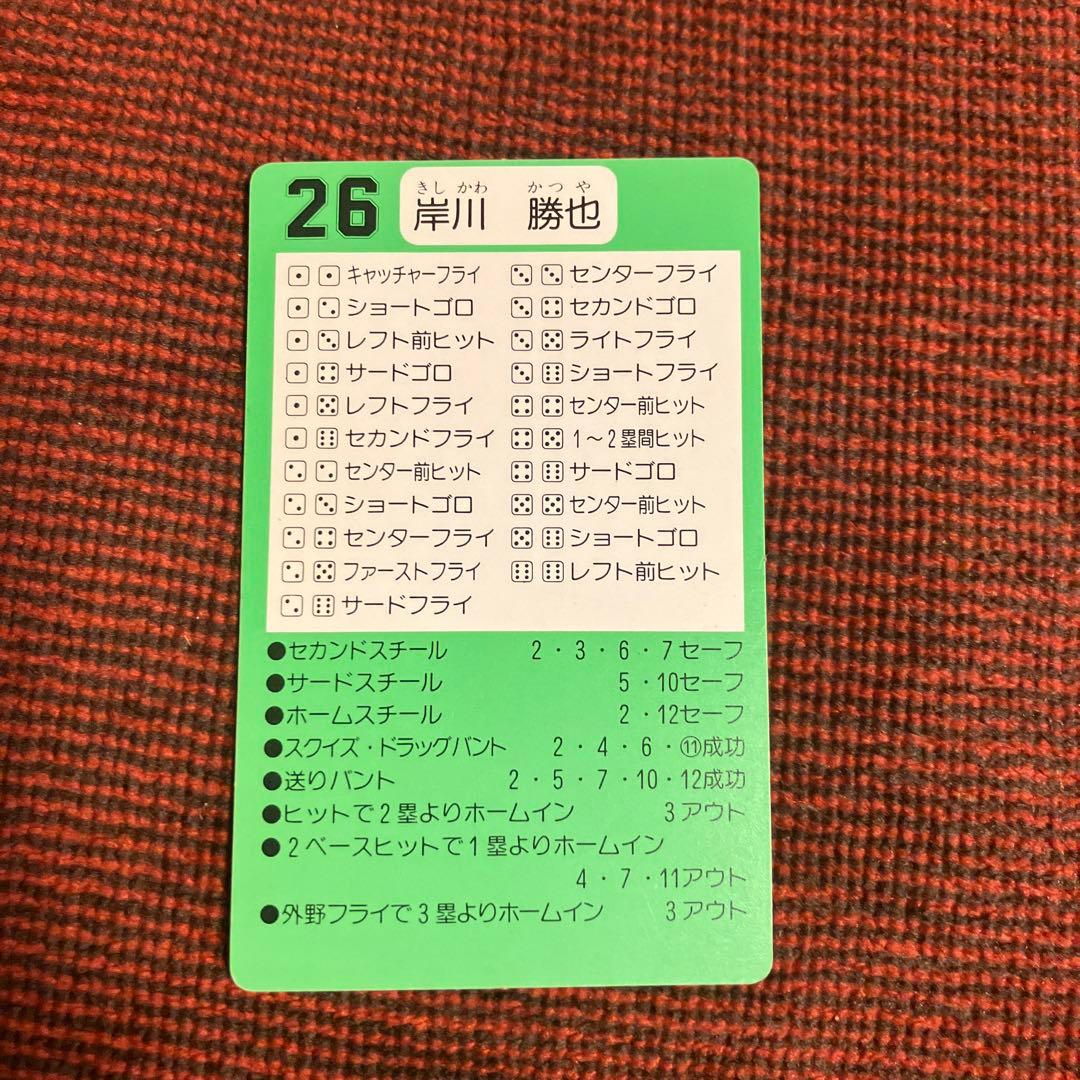 26
きし かわ かつ や
岸川 勝也
⚀ ⚀ キャッチャーフライ
⚀ ⚁ ショートゴロ
⚀ ⚂ レフト前ヒット
⚀ ⚃ サードゴロ
⚀ ⚄ レフトフライ
⚀ ⚅ セカンドフライ
⚁ ⚁ センター前ヒット
⚁ ⚂ ショートゴロ
⚁ ⚃ センターフライ
⚁ ⚄ ファーストフライ
⚁ ⚅ サードフライ
⚂ ⚂ センターフライ
⚂ ⚃ セカンドゴロ
⚂ ⚄ ライトフライ
⚂ ⚅ ショートフライ
⚃ ⚃ センター前ヒット
⚃ ⚄ 1〜2塁間ヒット
⚃ ⚅ サードゴロ
⚄ ⚄ センター前ヒット
⚄ ⚅ ショートゴロ
⚅ ⚅ レフト前ヒット
●セカンドスチール 2・3・6・7セーフ
●サードスチール 5・10セーフ
●ホームスチール 2・12セーフ
●スクイズ・ドラッグバント 2・4・6・⑪成功
●送りバント 2・5・7・10・12成功
●ヒットで2塁よりホームイン 3アウト
●2ベースヒットで1塁よりホームイン
4・7・11アウト
●外野フライで3塁よりホームイン 3アウト